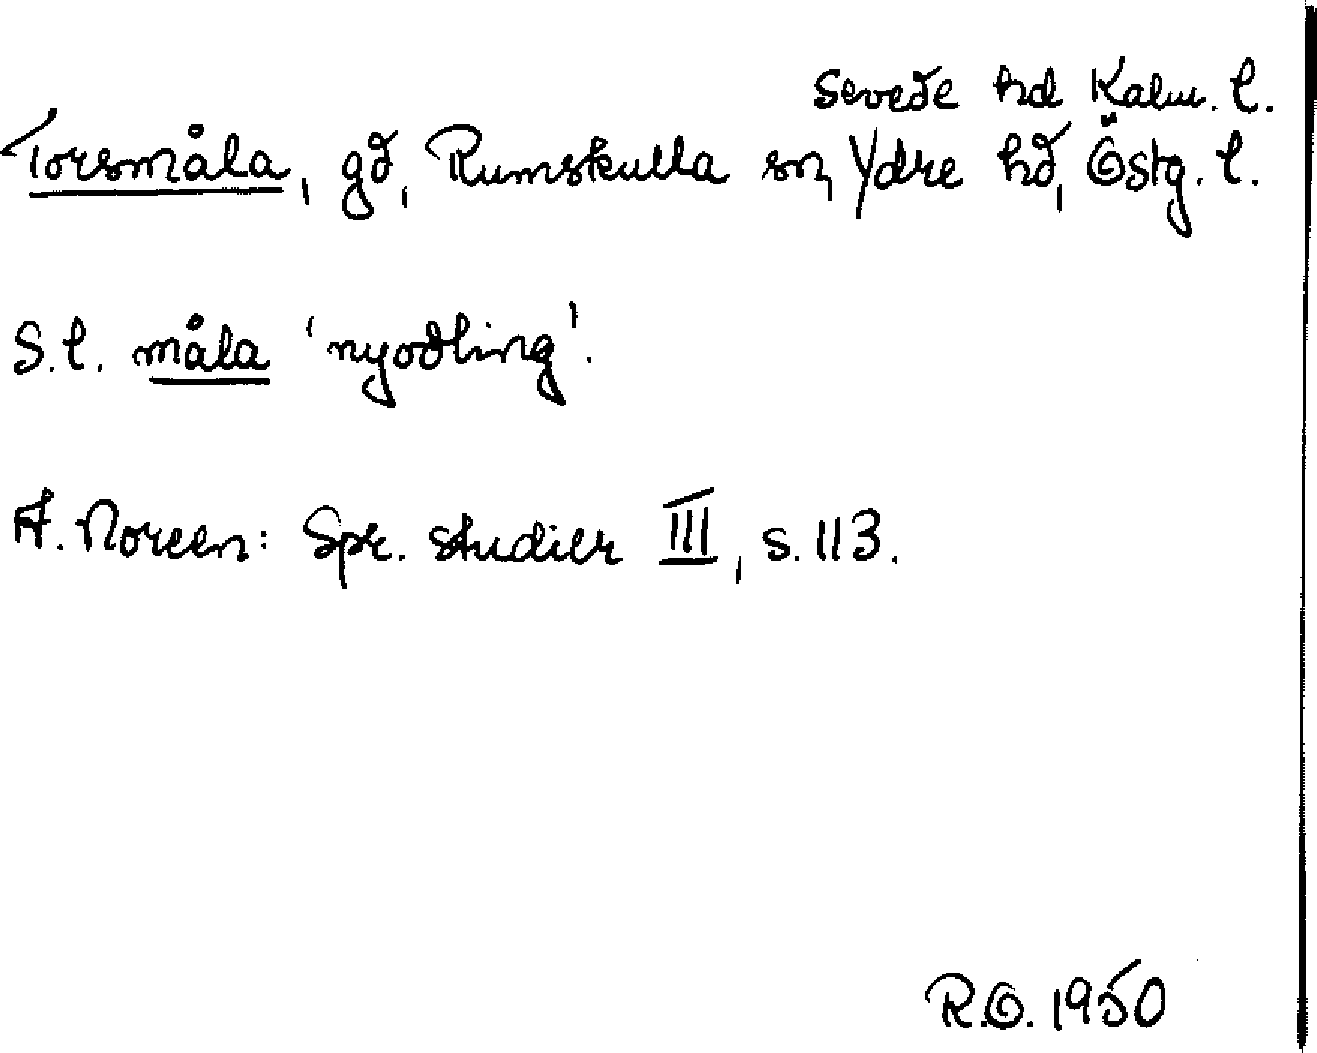 Sevede hd Kalm. l.
Torsmåla, gd, Rumskulla sn, Ydre hd, Östg. l.
S.l. måla 'nyodling'.
A. Noreen: Spr. studier III, s. 113.
R.O. 1950